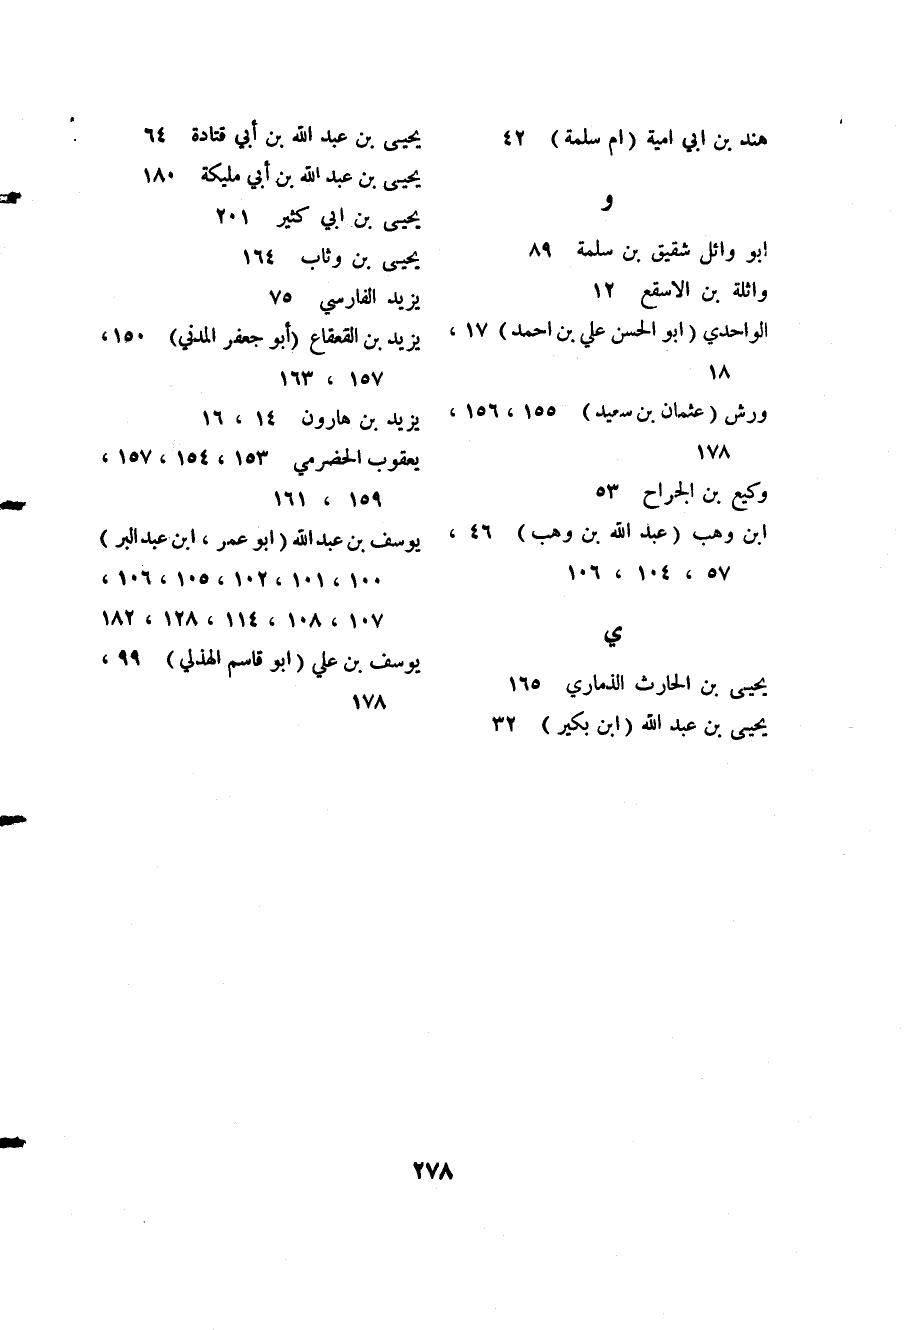 هند بن ابي امية (ام سلمة) ٤٢
و
ابو وائل شقيق بن سلمة ٨٩
واثلة بن الاسقع ١٢
الواحدي (ابو الحسن علي بن احمد) ١٧ ،
١٨
ورش (عثمان بن سعيد) ١٥٥ ، ١٥٦ ،
١٧٨
وكيع بن الجراح ٥٣
ابن وهب (عبد الله بن وهب) ٤٦ ،
٥٧ ، ١٠٤ ، ١٠٦
ي
يحيى بن الحارث الذماري ١٦٥
يحيى بن عبد الله (ابن بكير) ٣٢
يحيى بن عبد الله بن أبي قتادة ٦٤
يحيى بن عبد الله بن أبي مليكة ١٨٠
يحيى بن ابي كثير ٢٠١
يحيى بن وثاب ١٦٤
يزيد الفارسي ٧٥
يزيد بن القعقاع (أبو جعفر المدني) ١٥٠ ،
١٥٧ ، ١٦٣
يزيد بن هارون ١٤ ، ١٦
يعقوب الحضرمي ١٥٣ ، ١٥٤ ، ١٥٧ ،
١٥٩ ، ١٦١
يوسف بن عبد الله (ابو عمر ، ابن عبد البر)
١٠٠ ، ١٠١ ، ١٠٢ ، ١٠٥ ، ١٠٦ ،
١٠٧ ، ١٠٨ ، ١١٤ ، ١٢٨ ، ١٨٢
يوسف بن علي (ابو قاسم الهذلي) ٩٩ ،
١٧٨
٢٧٨